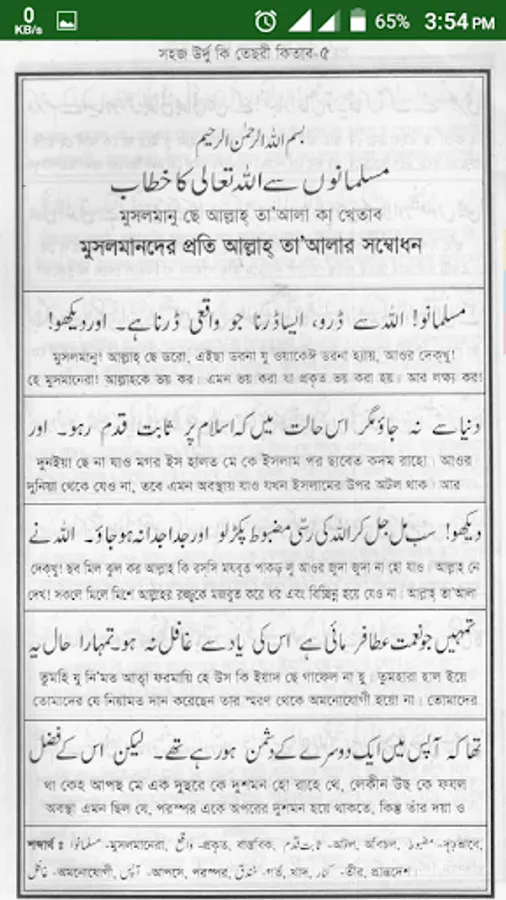 0
KB/s
65%
3:54 PM
সহজ উর্দু কি তেছরী কিতাব-৫
بسم اللہ الرحمٰن الرحیم
مسلمانوں سے اللہ تعالیٰ کا خطاب
মুসলমানু ছে আল্লাহ্ তা'আলা কা খেতাব
মুসলমানদের প্রতি আল্লাহ্ তা'আলার সম্বোধন
مسلمانو! اللہ سے ڈرو، ایسا ڈرنا جو واقعی ڈرنا ہے۔ اور دیکھو!
মুসলমানু! আল্লাহ্ ছে ডরো, এইছা ডরনা যু ওয়াকেঈ ডরনা হ্যায়, আওর দেক্খু!
হে মুসলমানেরা! আল্লাহকে ভয় কর। এমন ভয় করা যা প্রকৃত ভয় করা হয়। আর লক্ষ্য কর!
دنیا سے نہ جاؤ مگر اس حالت میں کہ اسلام پر ثابت قدم رہو۔ اور
দুনইয়া ছে না যাও মগর ইস হালত মে কে ইসলাম পর ছাবেত কদম রাহো। আওর
দুনিয়া থেকে যেও না, তবে এমন অবস্থায় যাও যখন ইসলামের উপর অটল থাক। আর
دیکھو! سب مل جل کر اللہ کی رسّی مضبوط پکڑ لو اور جدا جدا نہ ہو جاؤ۔ اللہ نے
দেক্খু! ছব মিল ঝুল কর আল্লাহ্ কি রস্সি মযবূত পাকড় লু আওর জুদা জুদা না হো যাও। আল্লাহ্ নে
দেখ! সকলে মিলে মিশে আল্লাহর রজ্জুকে মজবুত করে ধর এবং বিচ্ছিন্ন হয়ে যেও না। আল্লাহ্ তা'আলা
تمہیں جو نعمت عطا فرمائی ہے اس کی یاد سے غافل نہ ہو۔ تمہارا حال یہ
তুমহি যু নি'মত আত্বা ফরমায়ি হে উস কি ইয়াদ ছে গাফেল না হু। তুমহারা হাল ইয়ে
তোমাদের যে নিয়ামত দান করেছেন তার স্মরণ থেকে অমনোযোগী হয়ো না। তোমাদের
تھا کہ آپس میں ایک دوسرے کے دشمن ہو رہے تھے۔ لیکن اس کے فضل
থা কেহ আপছ মে এক দুছরে কে দুশমন হো রাহে থে, লেকীন উছ কে ফযল
অবস্থা এমন ছিল যে, পরস্পর একে অপরের দুশমন হয়ে থাকতে, কিন্তু তাঁর দয়া ও
শব্দার্থ : مسلمانو -মুসলমানেরা, واقعی -প্রকৃত, বাস্তবিক, ثابت قدم -অটল, অবিচল, مضبوط -সুদৃঢ়ভাবে,
غافل -অমনোযোগী, آپس -আপসে, পরস্পর, خندق -গর্ত, খাদ, کنار -তীর, প্রান্তদেশ।